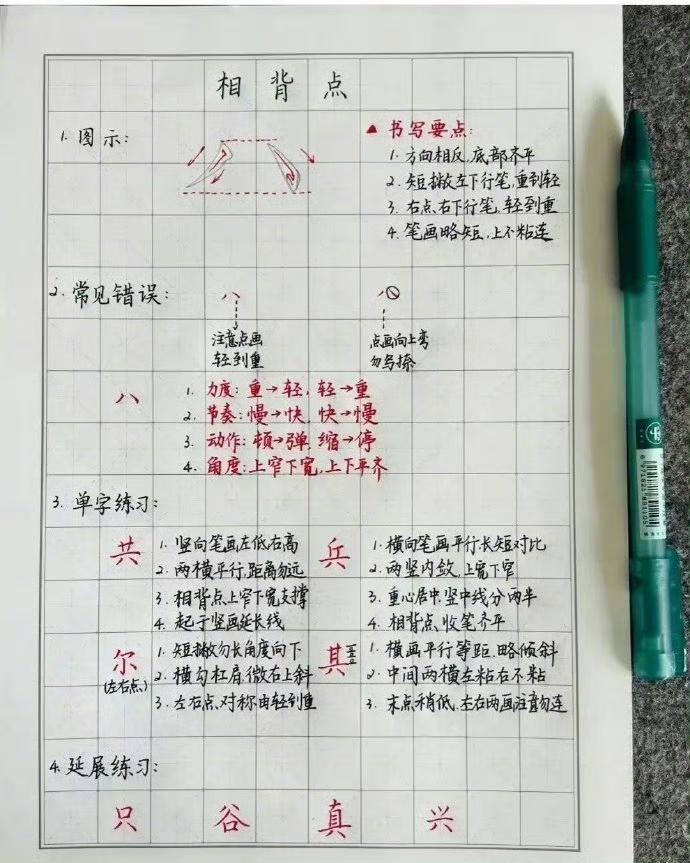 相背点
1. 图示:
▲ 书写要点:
1. 方向相反,底部齐平
2. 短撇左下行笔,重到轻
3. 右点,右下行笔,轻到重
4. 笔画略短,上不粘连
2. 常见错误:
注意点画
轻到重
点画向上弯
勿写捺
八
1. 力度: 重→轻, 轻→重
2. 节奏: 慢→快, 快→慢
3. 动作: 顿→弹, 缩→停
4. 角度: 上窄下宽, 上下平齐
3. 单字练习:
共
1. 竖向笔画,左低右高
2. 两横平行,距离勿远
3. 相背点上窄下宽支撑
4. 起于竖画延长线
兵
1. 横向笔画平行长短对比
2. 两竖内敛,上宽下窄
3. 重心居中,竖中线分两半
4. 相背点,收笔齐平
尔
(左右点)
1. 短撇勿长角度向下
2. 横勾扛肩,微右上斜
3. 左右点,对称由轻到重
其
1. 横画平行等距,略倾斜
2. 中间两横左粘右不粘
3. 末点稍低,左右两画注意勿连
4. 延展练习:
只 谷 真 兴